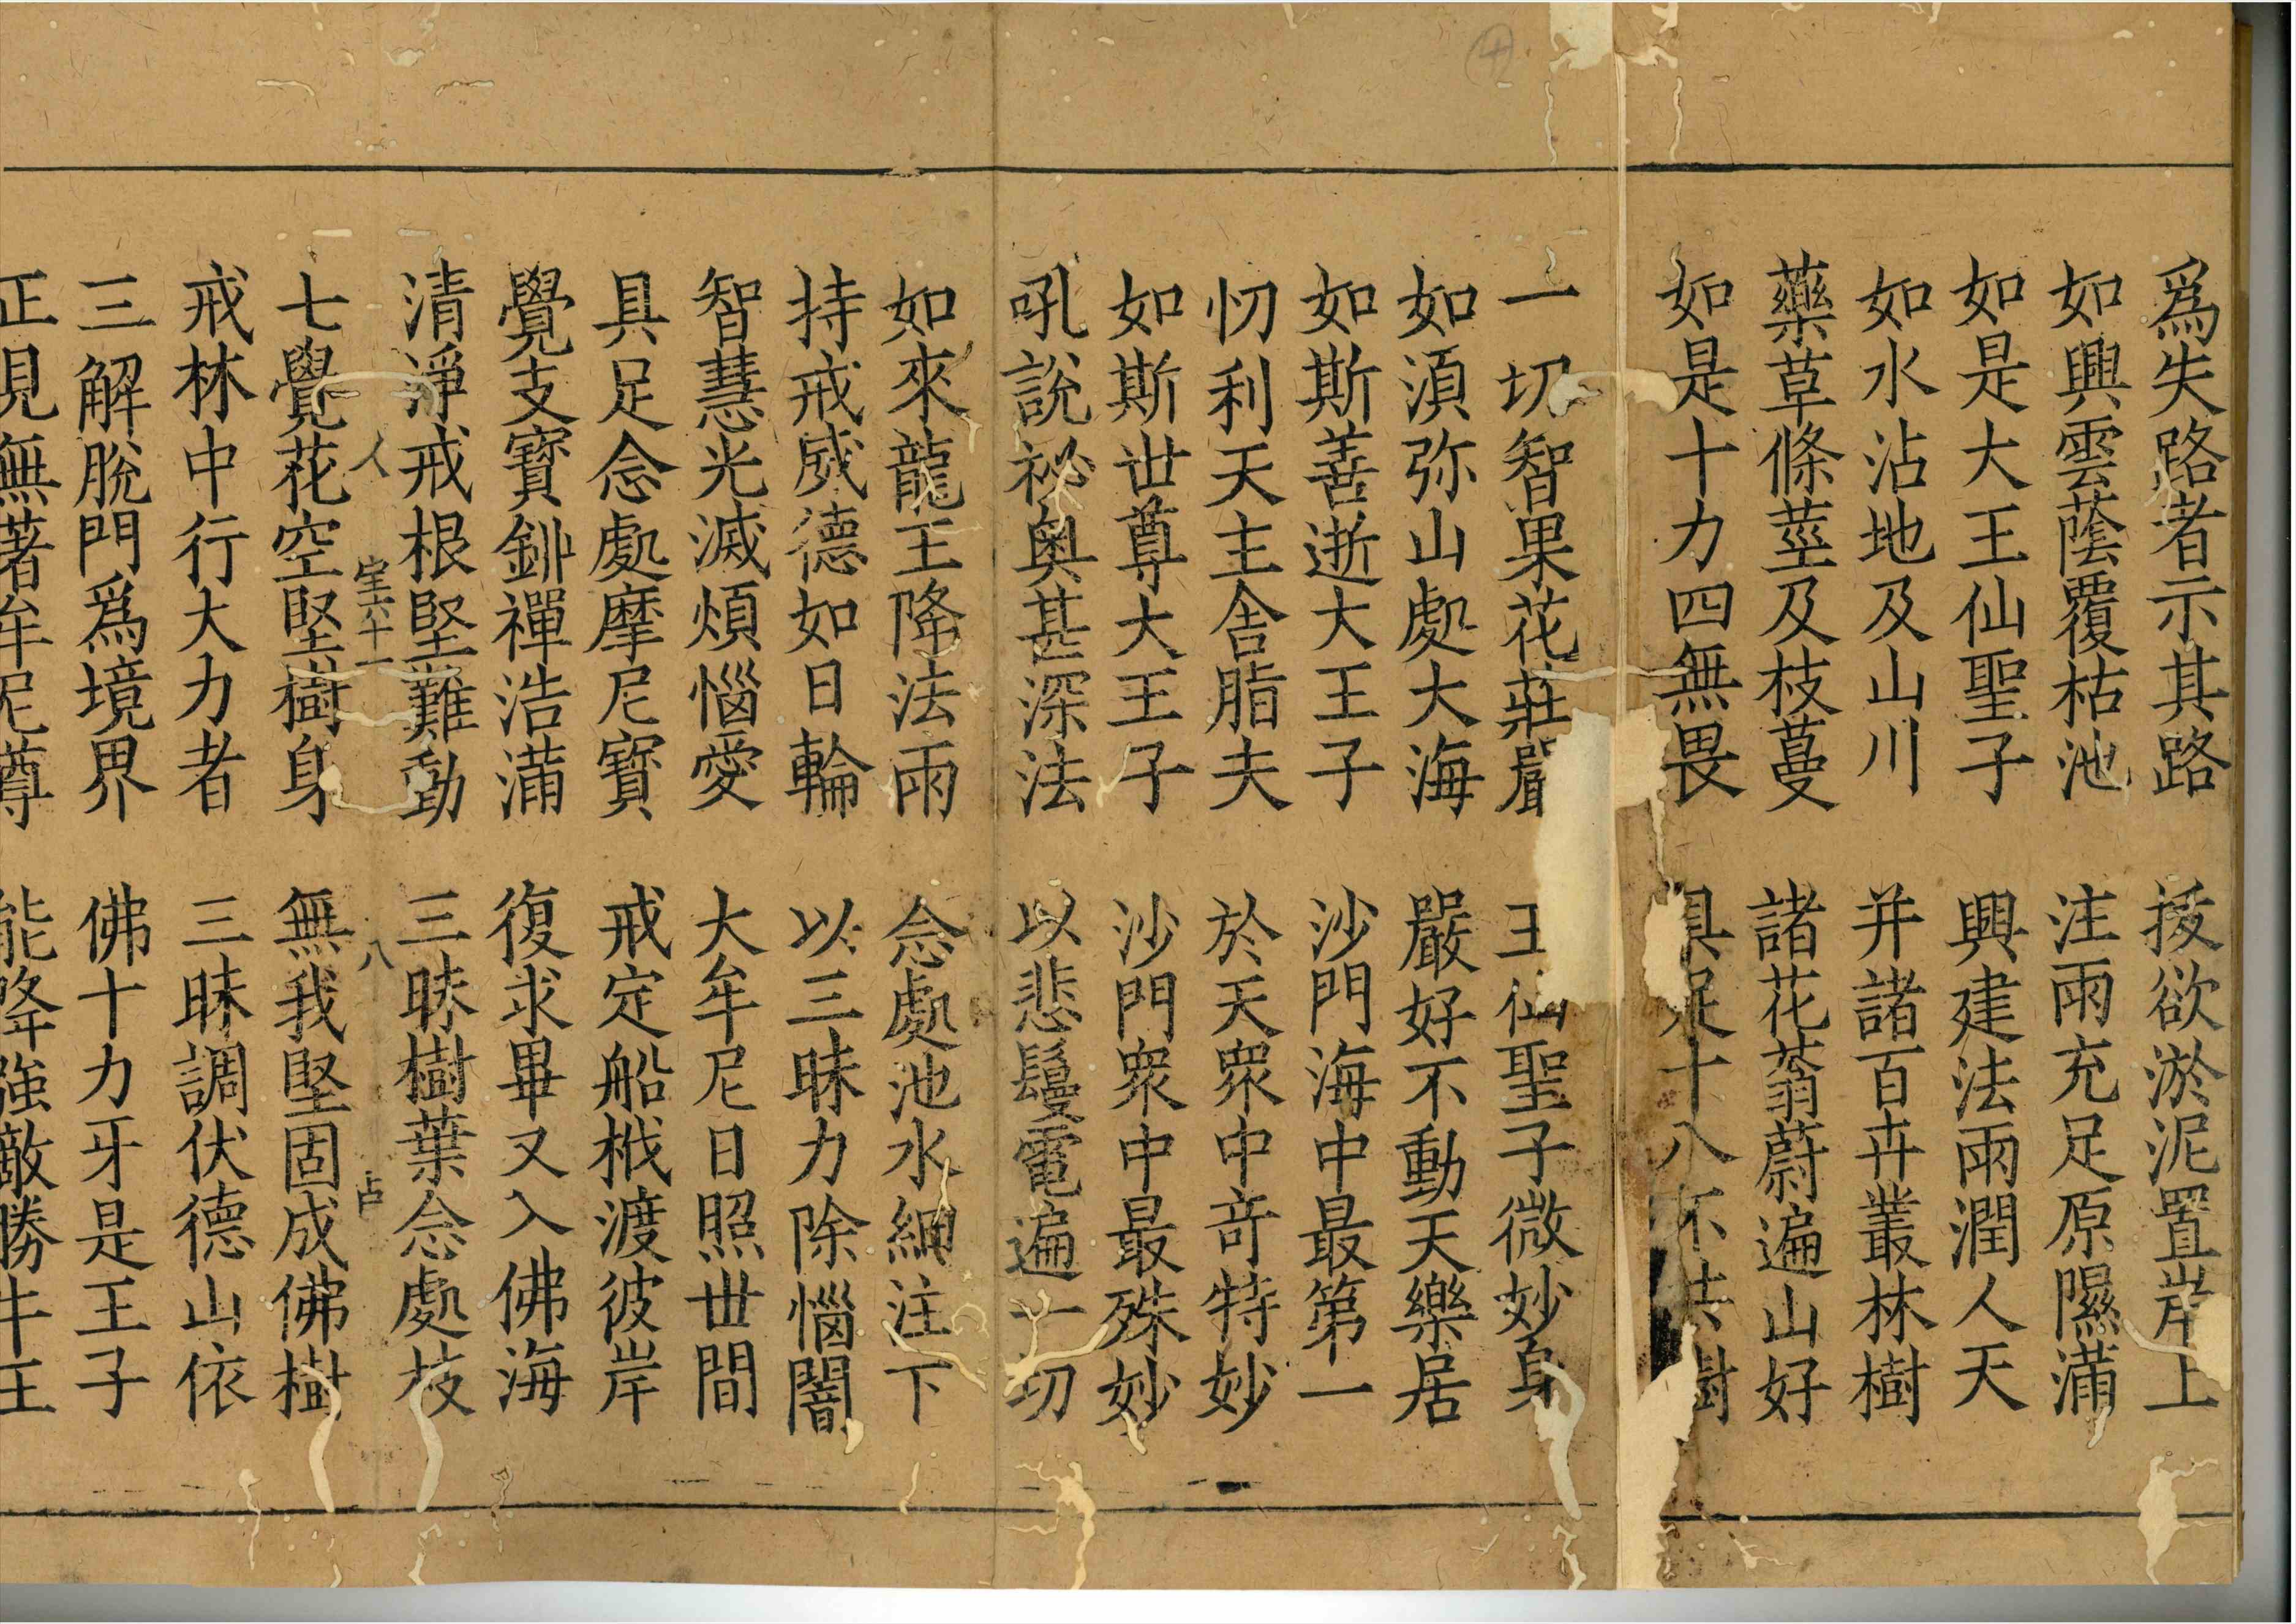 爲失路者示其路　拔欲淤泥置岸上
如興雲蔭覆枯池　注雨充足原隰滿
如是大王仙聖子　興建法雨潤人天
如水沾地及山川　并諸百卉叢林樹
藥草條莖及枝蔓　諸花蓊蔚遍山好
如是十力四無畏　具足十八不共樹
一切智果花莊嚴　王仙聖子微妙身
如湏弥山處大海　嚴好不動天樂居
如斯善逝大王子　沙門海中最第一
忉利天主舍脂夫　於天衆中奇特妙
如斯世尊大王子　沙門衆中最殊妙
吼說祕奥甚深法　以悲鬘電遍一切
如來龍王降法雨　念處池水網注下
持戒威德如日輪　以三昧力除惱闇
智慧光滅煩惱愛　大牟尼日照世間
具足念處摩尼寶　戒定船栰渡彼岸
覺支寶鉀禪浩滿　復求畢又入佛海
清淨戒根堅難動　三昧樹葉念處枝
人　六十一　八　占
七覺花空堅樹身　無我堅固成佛樹
戒林中行大力者　三昧調伏德山依
三解脫門爲境界　佛十力牙是王子
正見無著牟尼尊　能降強敵勝牛王